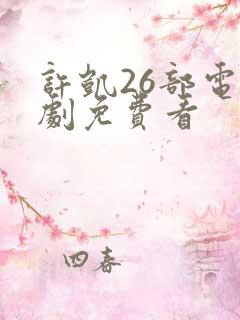 許凱26部電
劇免費看
四春